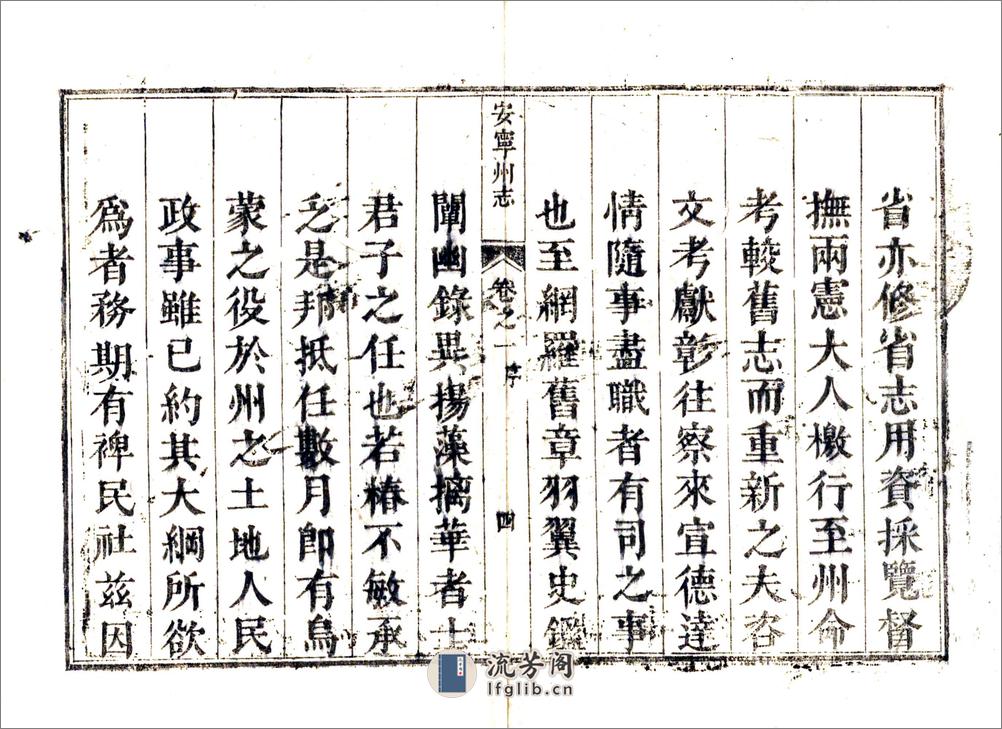 省亦修省志用資採覽督
撫兩憲大人檄行至州命
考較舊志而重新之夫咨
文考獻彰往察來宣德達
情隨事盡職者有司之事
也至網羅舊章羽翼史鑑
安寧州志 卷之一 序 四
闡幽錄異揚藻摛華者士
君子之任也若椿不敏承
乏是邦抵任數月即有烏
蒙之役於州之土地人民
政事雖已約其大綱所欲
爲者務期有裨民社茲因
流芳阁
lfglib.cn